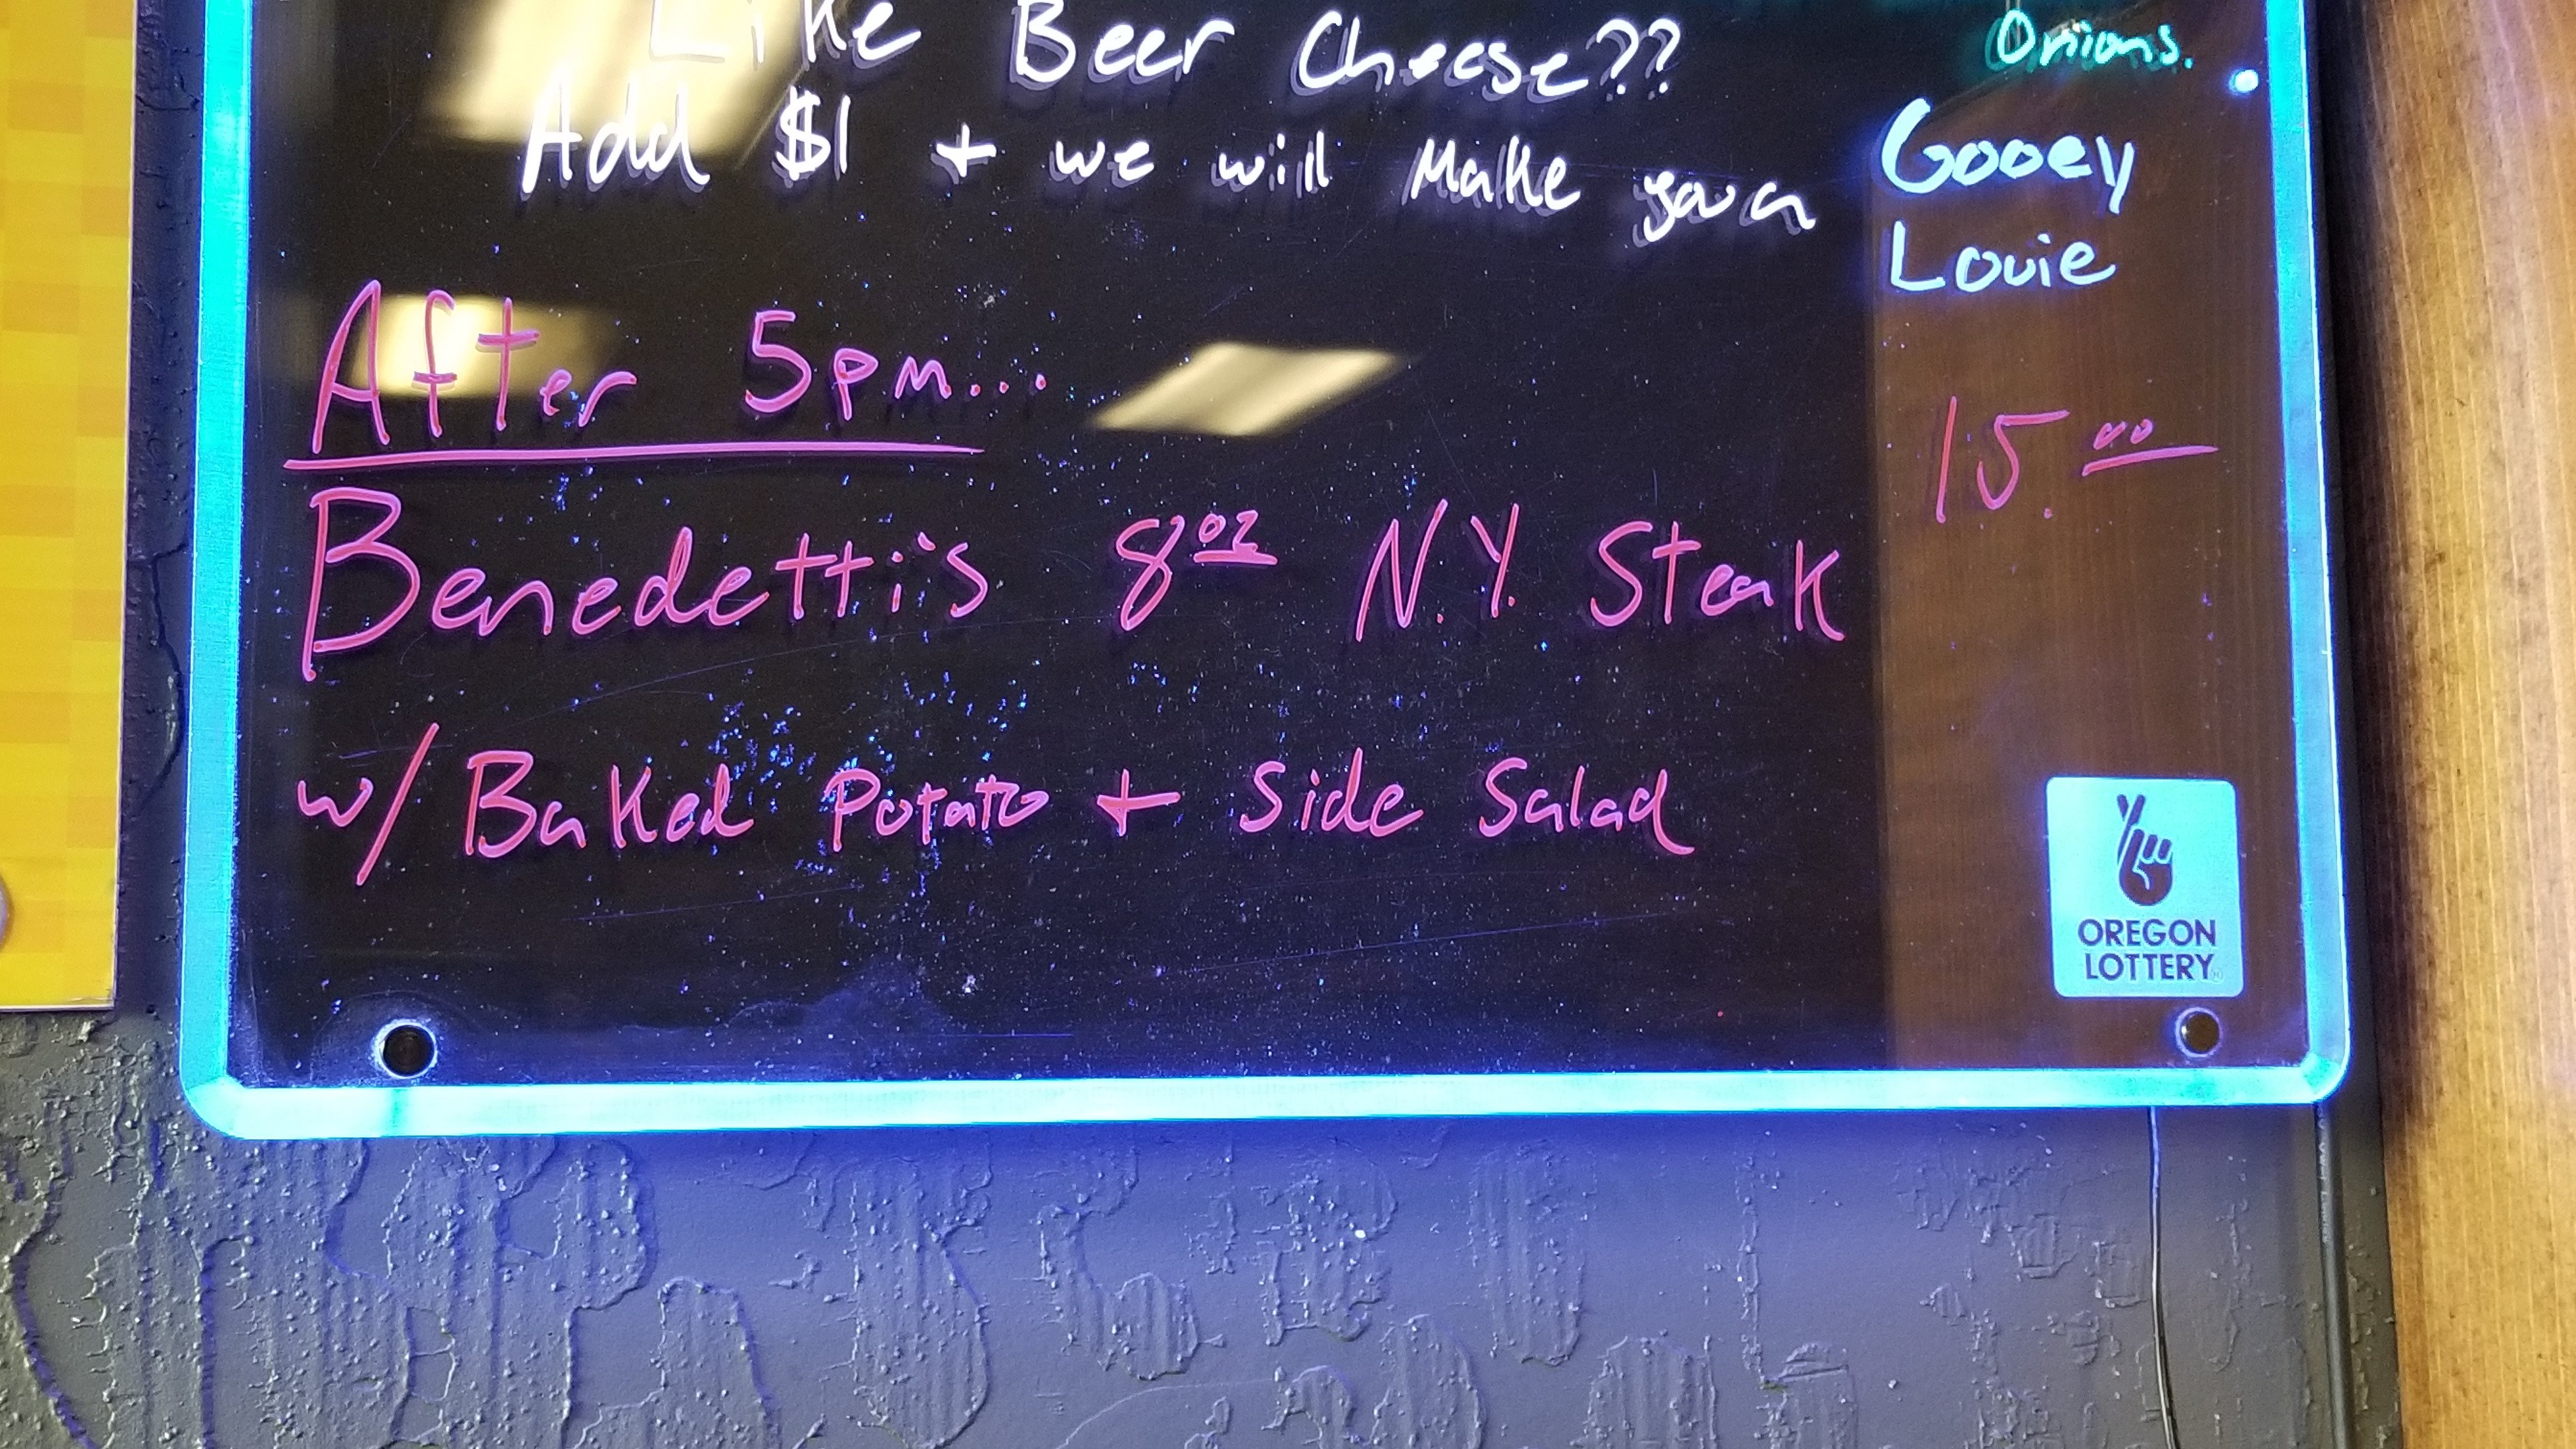 Onions.
Like Beer Cheese??
Add $1 + we will Make you a Gooey
Louie
After 5pm...
15.00
Benedetti's 8oz N.Y. Steak
w/ Baked Potato + Side Salad
OREGON
LOTTERY